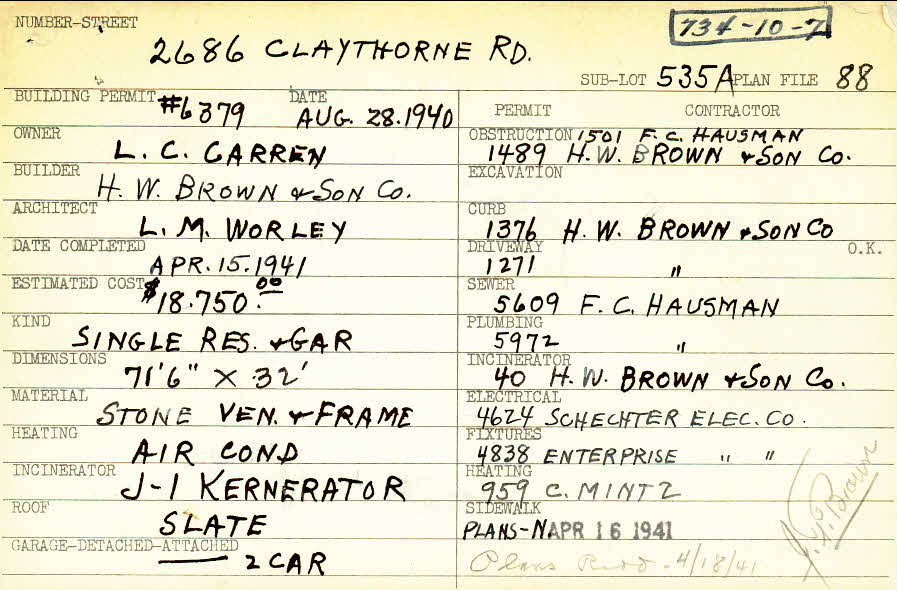 NUMBER-STREET
734-10-7
2686 CLAYTHORNE RD.
SUB-LOT 535A PLAN FILE 88
BUILDING PERMIT #6379 DATE AUG. 28.1940
OWNER
L. C. CARREN
BUILDER
H. W. BROWN & SON CO.
ARCHITECT
L. M. WORLEY
DATE COMPLETED
APR. 15.1941
ESTIMATED COST $18.750.00
KIND
SINGLE RES. & GAR
DIMENSIONS
71'6" X 32'
MATERIAL
STONE VEN. & FRAME
HEATING
AIR COND
INCINERATOR
J-1 KERNERATOR
ROOF
SLATE
GARAGE-DETACHED-ATTACHED
2 CAR
PERMIT CONTRACTOR
OBSTRUCTION 1501 F. C. HAUSMAN
1489 H. W. BROWN & SON CO.
EXCAVATION
CURB
1376 H. W. BROWN & SON CO
DRIVEWAY O.K.
1271 "
SEWER
5609 F. C. HAUSMAN
PLUMBING
5972 "
INCINERATOR
40 H. W. BROWN & SON CO.
ELECTRICAL
4624 SCHECHTER ELEC. CO.
FIXTURES
4838 ENTERPRISE " "
HEATING
959 C. MINTZ
SIDEWALK
PLANS-N APR 16 1941
Plans - 4/18/41
Brown